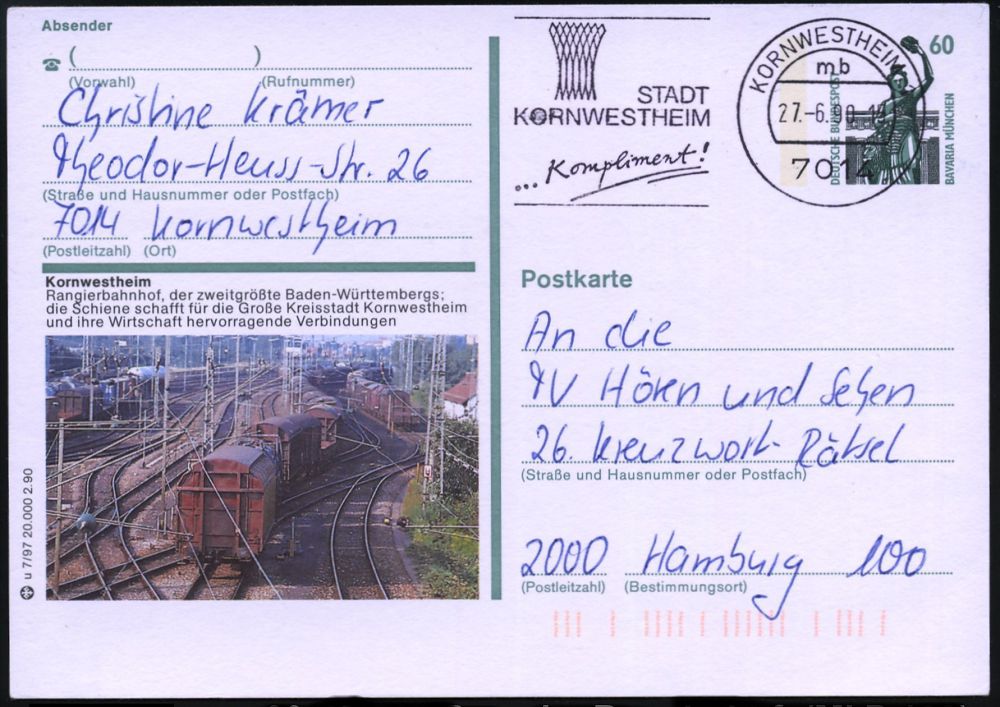 Absender
( )
(Vorwahl) (Rufnummer)
Christine Krämer
Theodor-Heuss-Str. 26
(Straße und Hausnummer oder Postfach)
7014 Kornwestheim
(Postleitzahl) (Ort)
Kornwestheim
Rangierbahnhof, der zweitgrößte Baden-Württembergs;
die Schiene schafft für die Große Kreisstadt Kornwestheim
und ihre Wirtschaft hervorragende Verbindungen
u 7/97 20.000 2.90
STADT
KORNWESTHEIM
...Kompliment!
KORNWESTHEIM
mb
27.-6.90
7014
60
DEUTSCHE BUNDESPOST
BAVARIA MÜNCHEN
Postkarte
An die
TV Hören und Sehen
26. Kreuzwort-Rätsel
(Straße und Hausnummer oder Postfach)
2000 Hamburg 100
(Postleitzahl) (Bestimmungsort)